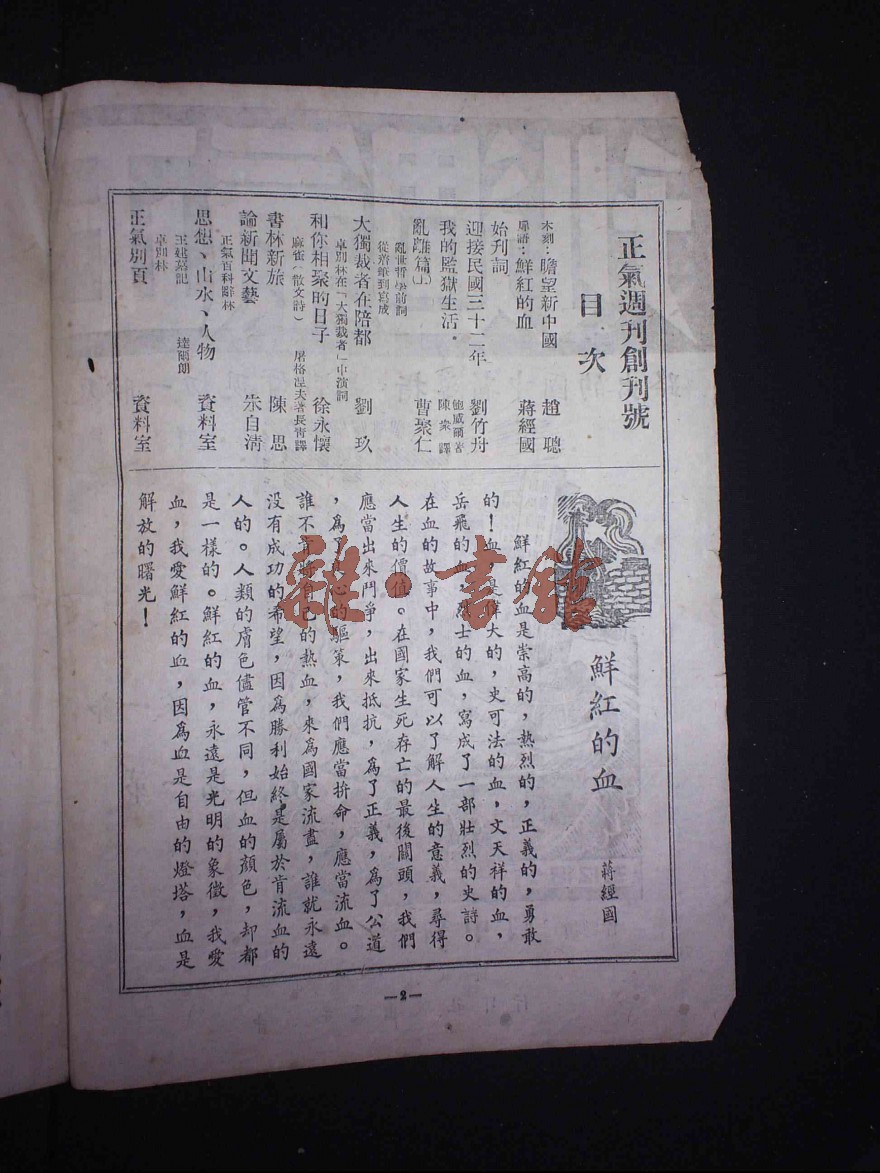 正氣週刊創刊號
目次
木刻：瞻望新中國 趙聰
扉語：鮮紅的血 蔣經國
始刊詞
迎接民國三十二年 劉竹舟
我的監獄生活． 鮑威爾著 陳衆譯
亂離篇（上） 曹聚仁
亂世哲學前詞
從齋筆到寫成
大獨裁者在陪都 劉玖
卓別林在「大獨裁者」中演詞
和你相聚的日子 徐永懷
麻雀（散文詩） 屠格涅夫著長青譯
書林新旅 陳思
論新聞文藝 朱自清
正氣百科辭林
思想、山水、人物 資料室
王建嘉記 達爾朗
卓別林
正氣別頁 資料室
鮮紅的血
蔣經國
鮮紅的血是崇高的，熱烈的，正義的，勇敢
的！血是偉大的，史可法的血，文天祥的血，
岳飛的血，烈士的血，寫成了一部壯烈的史詩。
在血的故事中，我們可以了解人生的意義，尋得
人生的價值。在國家生死存亡的最後關頭，我們
應當出來鬥爭，出來抵抗，為了正義，為了公道
，為了心的驅策，我們應當拚命，應當流血。
誰不肯將自己的熱血，來為國家流盡，誰就永遠
沒有成功的希望，因為勝利始終是屬於肯流血的
人的。人類的膚色儘管不同，但血的顏色，却都
是一樣的。鮮紅的血，永遠是光明的象徵，我愛
血，我愛鮮紅的血，因為血是自由的燈塔，血是
解放的曙光！
—2—
雜·書館